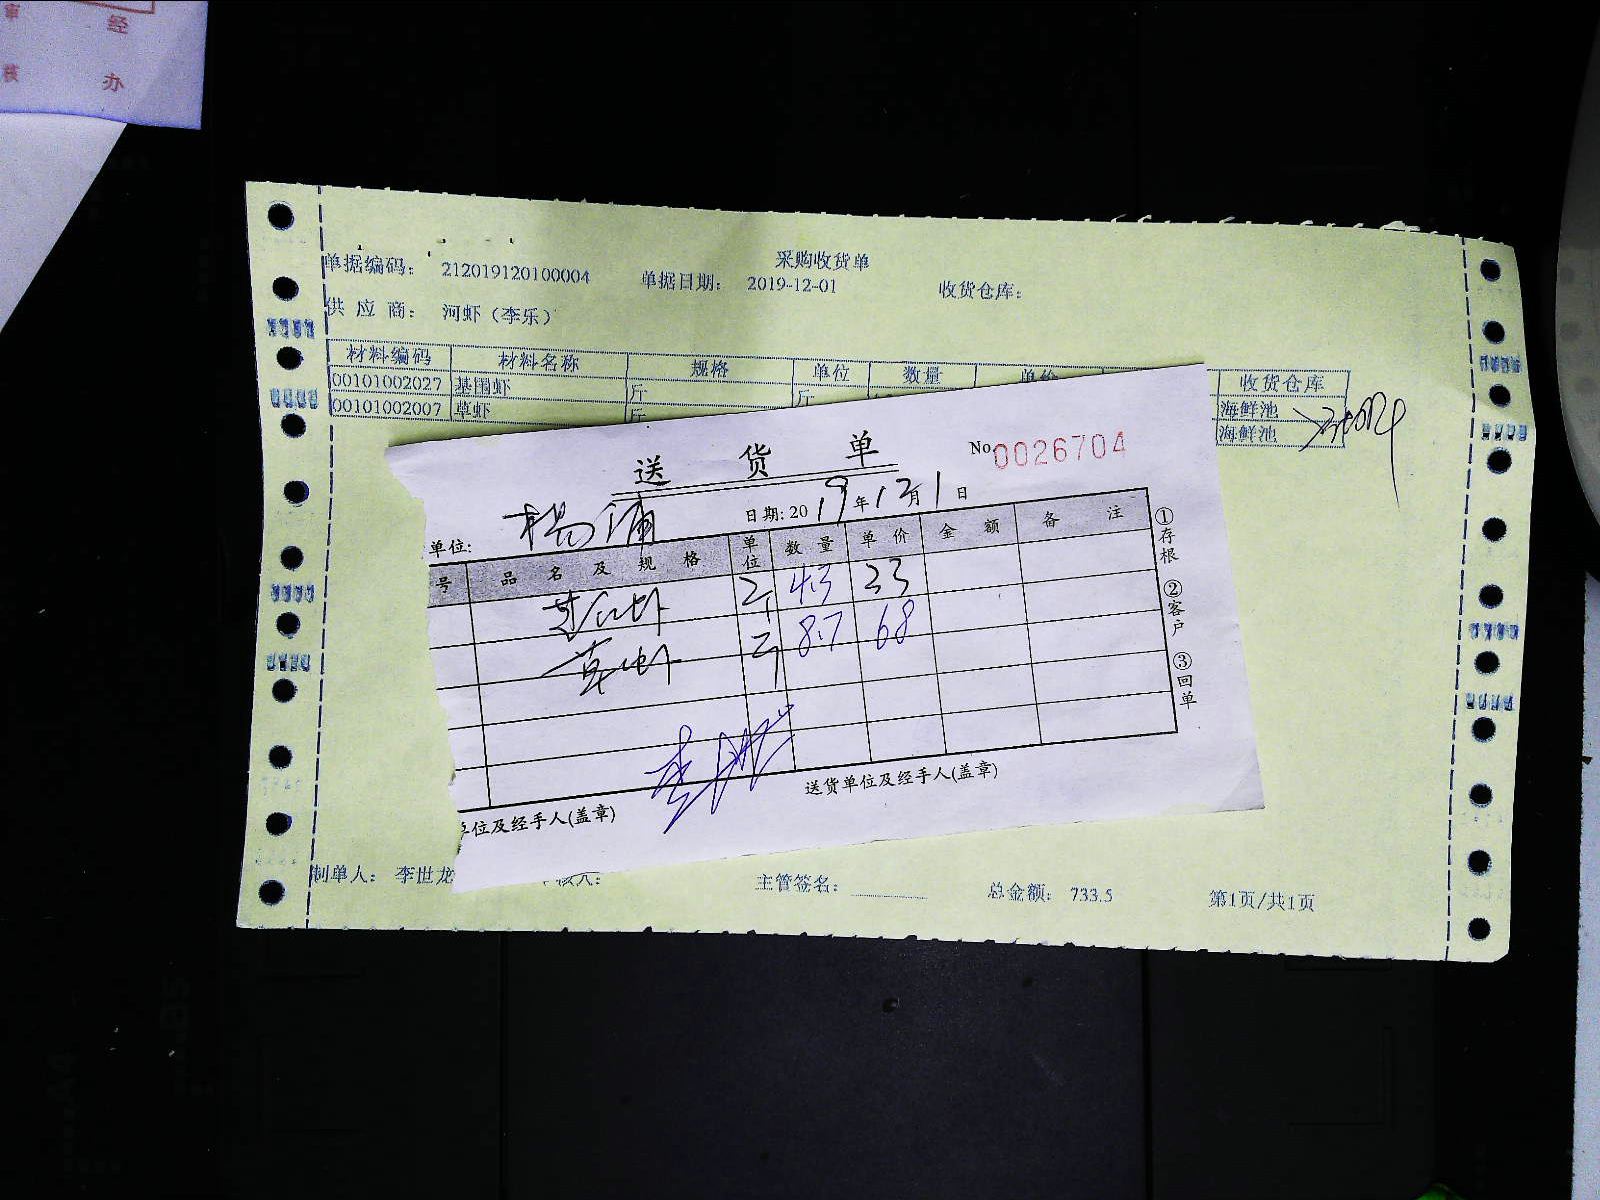 经
办
审
核
采购收货单
单据编码： 212019120100004 单据日期： 2019-12-01 收货仓库：
供 应 商： 河虾（李乐）
材料编码 材料名称 规格 单位 数量 单价 收货仓库
00101002027 基围虾 斤 海鲜池
00101002007 草虾 斤 海鲜池
送 货 单 No. 0026704
单位: 杨浦 日期: 2019年12月1日
号 品名及规格 单位 数量 单价 金额 备注
基围虾 斤 4.3 23
草虾 斤 8.7 68
①存根 ②客户 ③回单
单位及经手人(盖章) 送货单位及经手人(盖章)
制单人： 李世龙 审核人： 主管签名： 总金额： 733.5 第1页/共1页